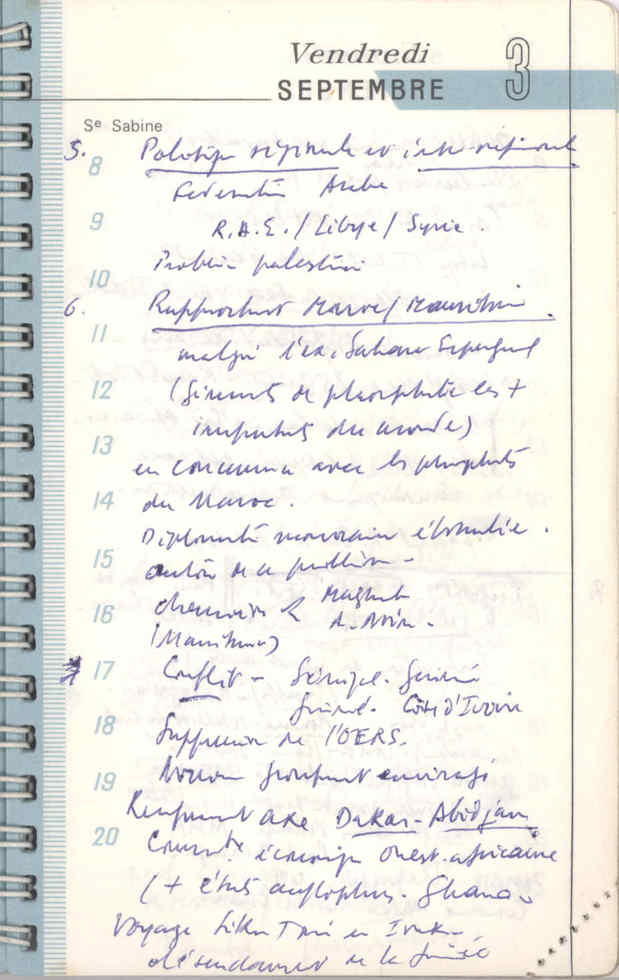 Vendredi 3
SEPTEMBRE
Se Sabine
5. Politique régionale et inter-régional
8
Federation Arabe
9
R.A.E. / Libye / Syrie.
Problème palestinien
10
6. Rapprochement Maroc / Mauritanie.
11
malgré l'ex. Sahara Espagnol
12
(Gisements de phosphate les +
importants du monde)
13
en concurrence avec les phosphates
14
du Maroc.
Diplomatie marocaine
15
autour de ce problème
16
charnière Maghreb
A. Noire.
(Mauritanie)
17
7 Conflit - Sénégal. Guinée
Guinée. Côte d'Ivoire
18
Suppression de l'OERS.
19
Nouveau groupement envisagé
Renforcement axe Dakar-Abidjan
20
Communauté économique Ouest-africaine
(+ états anglophones. Ghana
Voyage en
de la Guinée